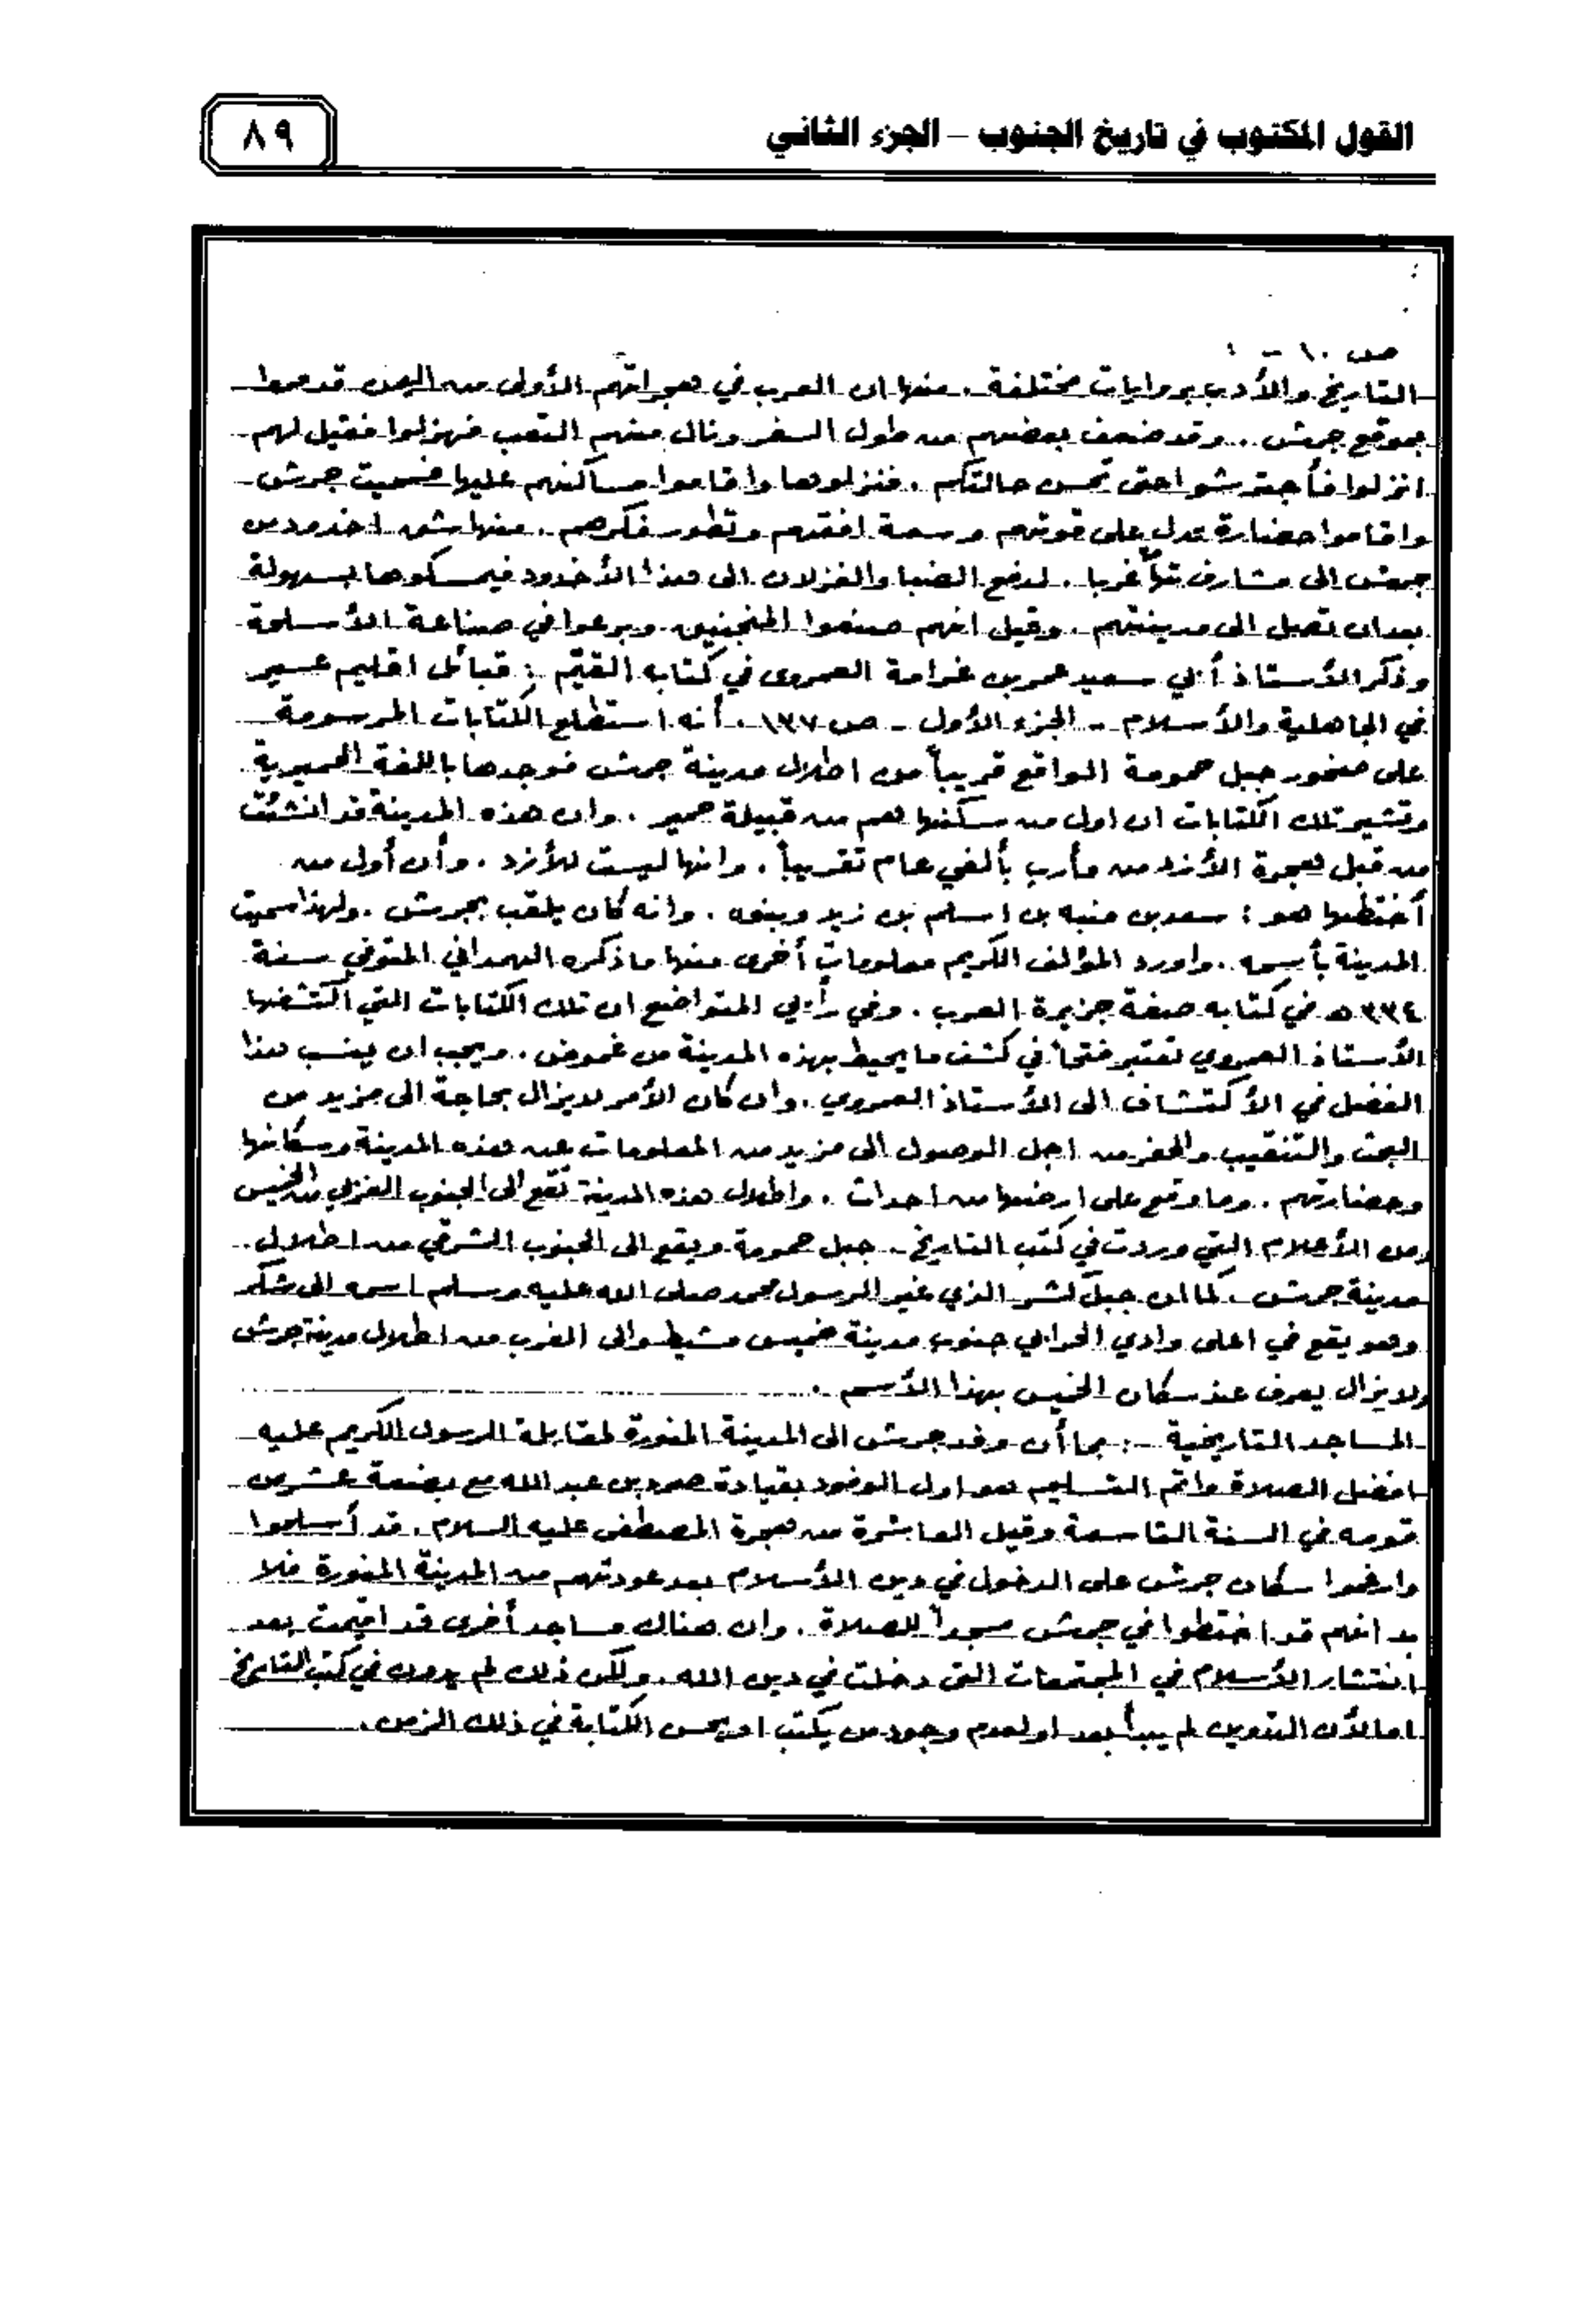 القول المكتوب في تاريخ الجنوب – الجزء الثاني
٨٩
ص ١٠ - ١
التاريخ والأدب بروايات مختلفة . منها ان العرب في هجراتهم الأولى من اليمن قد مروا
بموقع جرش .. وقد ضعف بعضهم من طول السفر ونال منهم التعب فهزلوا فقيل لهم
انزلوا فأجترشوا حتى تحسن حالتكم . فنزلوها واقاموا مساكنهم عليها فسميت جرش
واقاموا حضارة تدل على قوتهم وسعة افقهم وتطور فكرهم . منها شق اخدود من
جرش الى مشارف غربا . لدفع الضبا والغزلان الى هذا الأخدود فيمسكوها بسهولة
بعد ان تصل الى مدينتهم . وقيل انهم صنعوا المنجنيق وبرعوا في صناعة الأسلحة
وذكر الأستاذ أبي سعيد عمر بن غرامة العمروي في كتابه القيّم : قبائل اقليم عسير
في الجاهلية والأسلام - الجزء الأول - ص ١٧٧ . أنه استطلع الكتابات المرسومة
على صخور جبل حمومة الواقع قريباً من اطلال مدينة جرش فوجدها باللغة الحميرية
وتشير تلك الكتابات ان اول من سكنها هم من قبيلة حمير . وان هذه المدينة قد انشئت
من قبل هجرة الأزد من مأرب بألفي عام تقريباً . وانها ليست للأزد . وأن أول من
أختطها هو : سعد بن منبه بن اسلم بن زيد وبنوه . وانه كان يلقب بجرش . ولهذا سميت
المدينة بأسمه . واورد المؤلف الكريم معلومات أخرى منها ما ذكره الهمداني المتوفي سنة
٣٣٤ هـ في كتابه صفة جزيرة العرب . وفي رأيي المتواضع ان تلك الكتابات التي اكتشفها
الأستاذ العمروي تعتبر فتحاً في كشف ما يحيط بهذه المدينة من غموض . ويجب ان ينسب هذا
الفضل في الأكتشاف الى الأستاذ العمروي . وان كان الأمر لايزال بحاجة الى مزيد من
البحث والتنقيب والحفر من اجل الوصول الى مزيد من المعلومات عن هذه المدينة وسكانها
وحضارتهم . وما وقع على ارضها من احداث . واطلال هذه المدينة تقع الى الجنوب الغربي من الخميس
ومن الأعلام التي وردت في كتب التاريخ - جبل حمومة ويقع الى الجنوب الشرقي من اطلال
مدينة جرش . كما ان جبل كشر الذي غير الرسول محمد صلى الله عليه وسلم اسمه الى شكر
وهو يقع في اعلى وادي الحرابي جنوب مدينة خميس مشيط والى الغرب من اطلال مدينة جرش
ولايزال يعرف عند سكان الخميس بهذا الأسم .
المساجد التاريخية :- بما أن وفد جرش الى المدينة المنورة لمقابلة الرسول الكريم عليه
افضل الصلاة واتم التسليم هو اول الوفود بقيادة صرد بن عبد الله مع بضعة عشر من
قومه في السنة التاسعة وقيل العاشرة من هجرة المصطفى عليه السلام . قد أسلموا
وارغموا سكان جرش على الدخول في دين الأسلام بعد عودتهم من المدينة المنورة فلا
بد انهم قد اختطوا في جرش مسجداً للصلاة . وان هناك مساجد أخرى قد اقيمت بعد
انتشار الأسلام في المجتمعات التى دخلت في دين الله . ولكن ذلك لم يدون في كتب التاريخ
اما لأن التدوين لم يبدأ بعد او لعدم وجود من يكتب او يحسن الكتابة في ذلك الزمن .